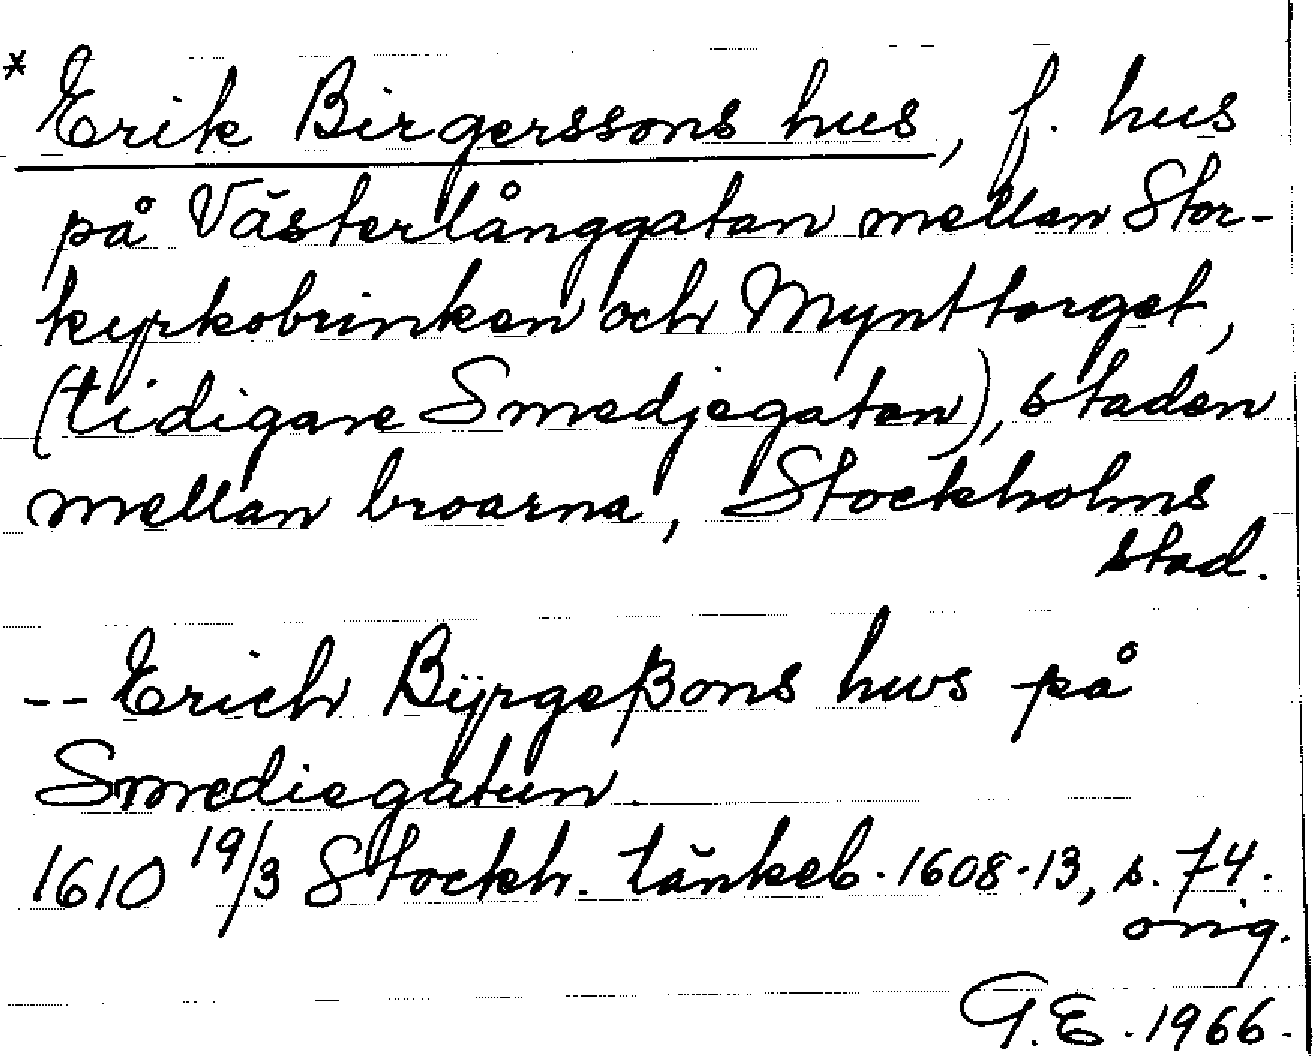 * Erik Birgerssons hus, f. hus
på Västerlånggatan mellan Stor-
kyrkobrinken och Mynttorget,
(tidigare Smedjegatan), staden
mellan broarna, Stockholms
stad.
-- Erich Byrgeßons hws på
Smediegatun.
1610 19/3 Stockh. tänkeb. 1608-13, s. 74.
orig.
G.E. 1966.